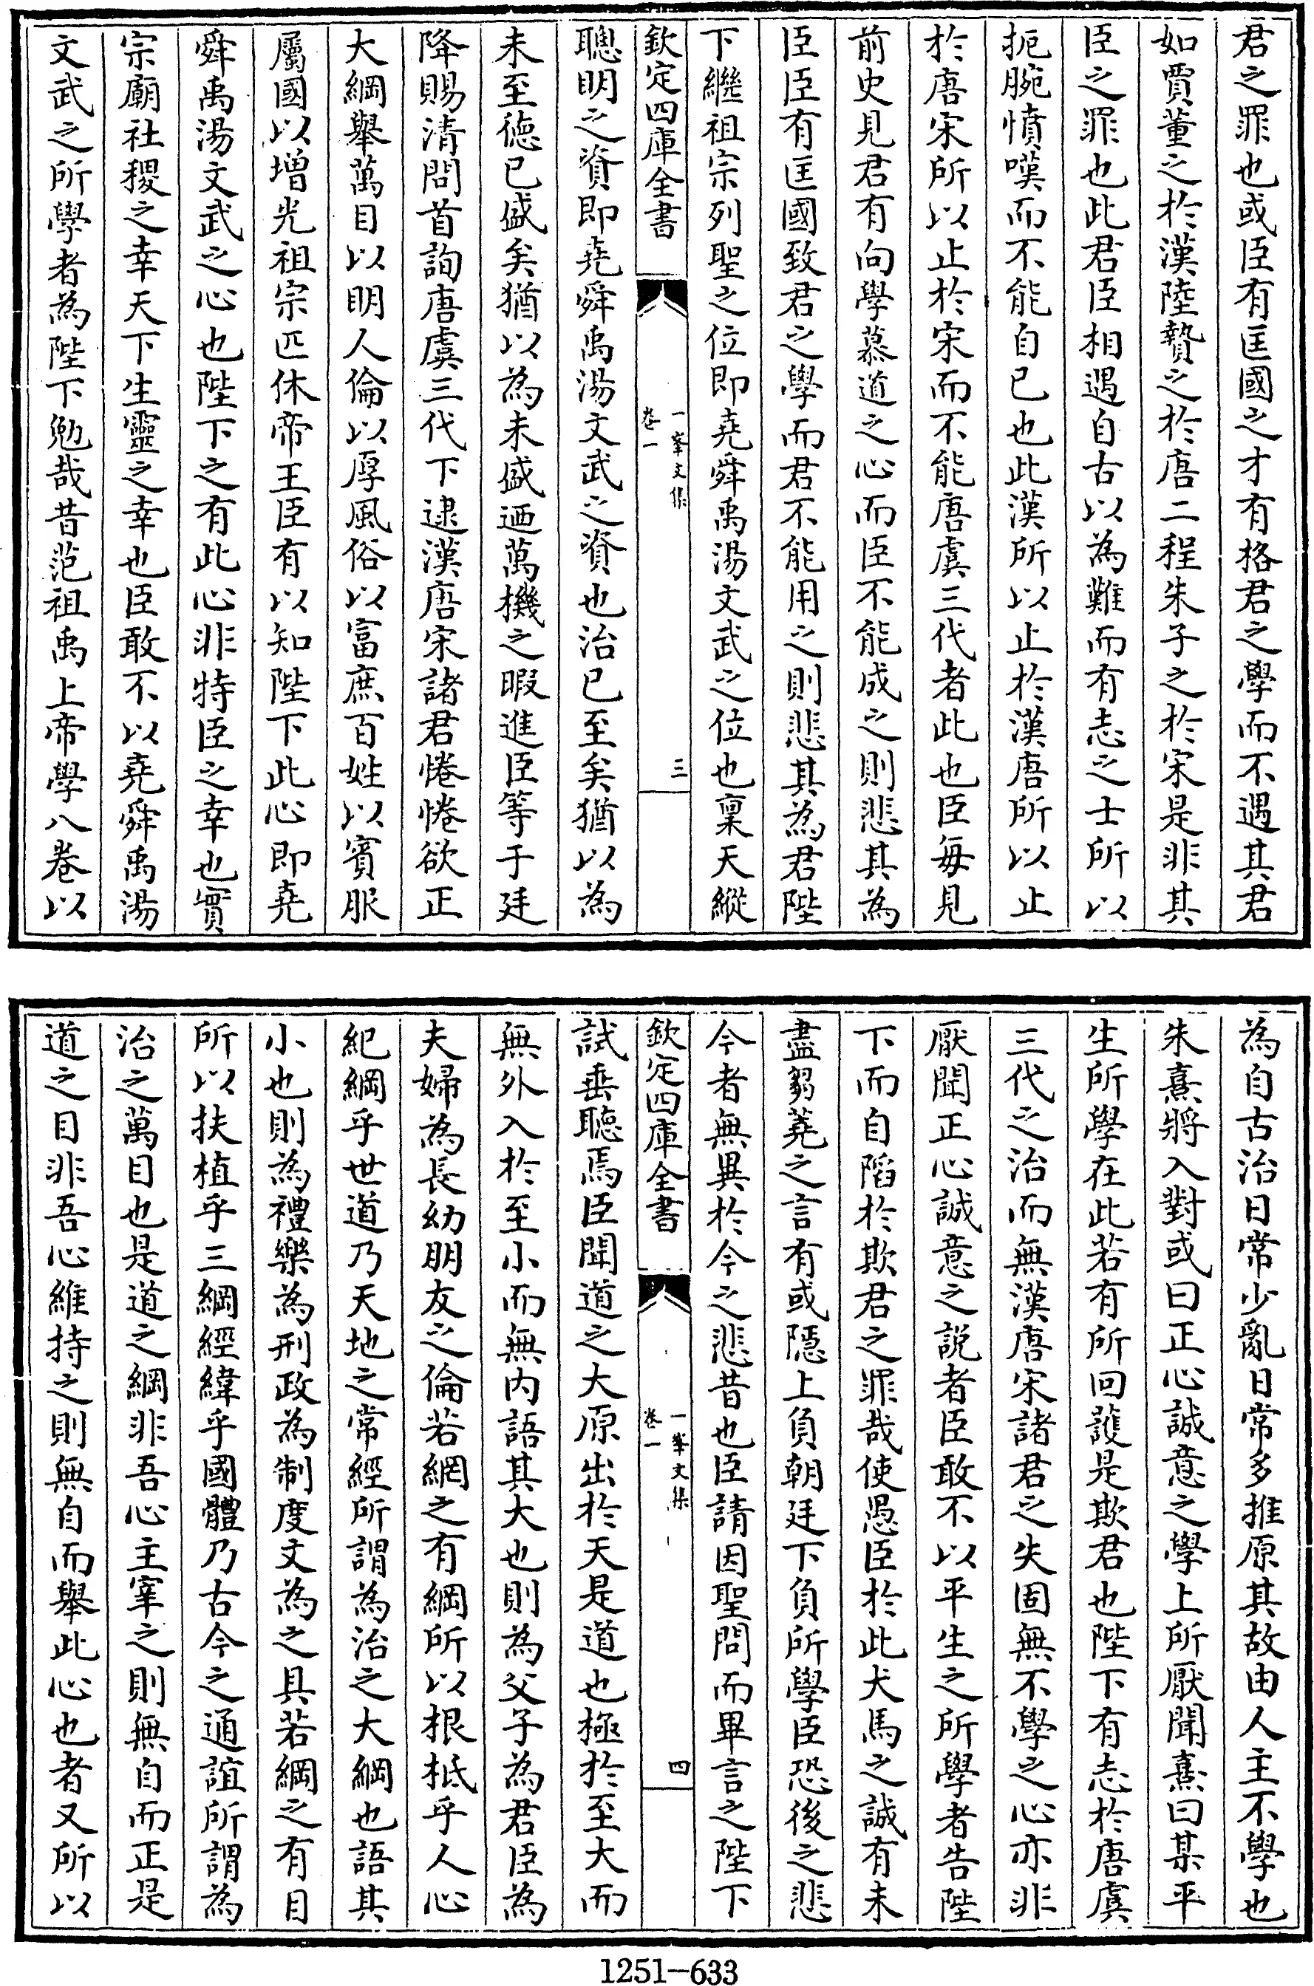 君之罪也或臣有匡國之才有格君之學而不遇其君
如賈董之於漢陸贄之於唐二程朱子之於宋是非其
臣之罪也此君臣相遇自古以為難而有志之士所以
扼腕憤嘆而不能自已也此漢所以止於漢唐所以止
於唐宋所以止於宋而不能唐虞三代者此也臣每見
前史見君有向學慕道之心而臣不能成之則悲其為
臣臣有匡國致君之學而君不能用之則悲其為君陛
下繼祖宗列聖之位即堯舜禹湯文武之位也稟天縱
欽定四庫全書
一峯文集
卷一
三
聰明之資即堯舜禹湯文武之資也治已至矣猶以為
未至德已盛矣猶以為未盛迺萬機之暇進臣等于廷
降賜清問首詢唐虞三代下逮漢唐宋諸君惓惓欲正
大綱舉萬目以明人倫以厚風俗以富庶百姓以賓服
屬國以增光祖宗匹休帝王臣有以知陛下此心即堯
舜禹湯文武之心也陛下之有此心非特臣之幸也實
宗廟社稷之幸天下生靈之幸也臣敢不以堯舜禹湯
文武之所學者為陛下勉哉昔范祖禹上帝學八卷以
為自古治日常少亂日常多推原其故由人主不學也
朱熹將入對或曰正心誠意之學上所厭聞熹曰某平
生所學在此若有所回護是欺君也陛下有志於唐虞
三代之治而無漢唐宋諸君之失固無不學之心亦非
厭聞正心誠意之說者臣敢不以平生之所學者告陛
下而自陷於欺君之罪哉使愚臣於此犬馬之誠有未
盡芻蕘之言有或隱上負朝廷下負所學臣恐後之悲
今者無異於今之悲昔也臣請因聖問而畢言之陛下
欽定四庫全書
一峯文集
卷一
四
試垂聽焉臣聞道之大原出於天是道也極於至大而
無外入於至小而無內語其大也則為父子為君臣為
夫婦為長幼朋友之倫若網之有綱所以根柢乎人心
紀綱乎世道乃天地之常經所謂為治之大綱也語其
小也則為禮樂為刑政為制度文為之具若綱之有目
所以扶植乎三綱經緯乎國體乃古今之通誼所謂為
治之萬目也是道之綱非吾心主宰之則無自而正是
道之目非吾心維持之則無自而舉此心也者又所以
1251—633